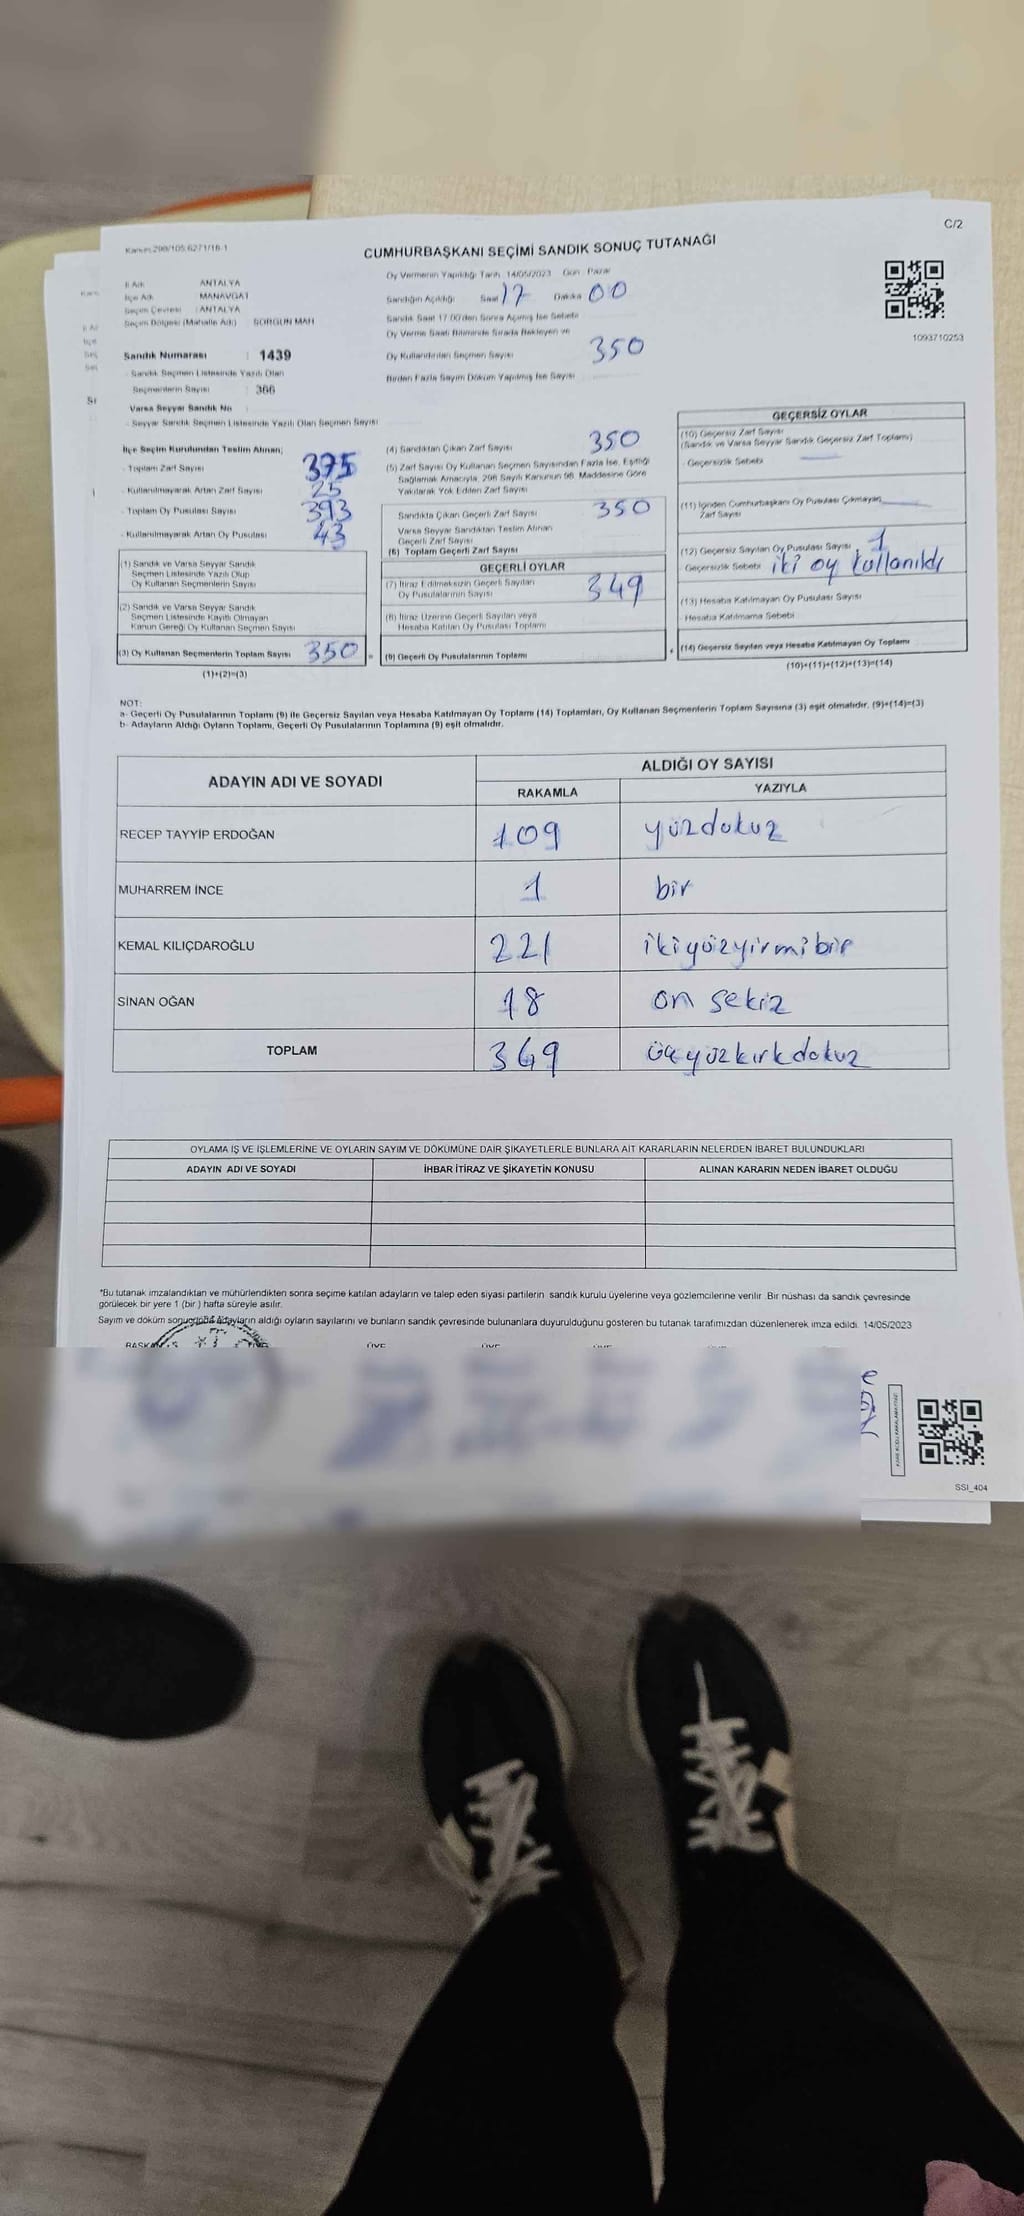 C/2
Kanun:298/105;6271/18-1
CUMHURBAŞKANI SEÇİMİ SANDIK SONUÇ TUTANAĞI
İl Adı ANTALYA
İlçe Adı MANAVGAT
Seçim Çevresi : ANTALYA
Seçim Bölgesi (Mahalle Adı) SORGUN MAH
Sandık Numarası : 1439
Sandık Seçmen Listesinde Yazılı Olan
Seçmenlerin Sayısı : 366
Varsa Seyyar Sandık No
- Seyyar Sandık Seçmen Listesinde Yazılı Olan Seçmen Sayısı
Oy Vermenin Yapıldığı Tarih 14/05/2023 Gün Pazar
Sandığın Açıldığı Saat 17 Dakika 00
Sandık Saat 17.00'den Sonra Açımış İse Sebebi
Oy Verme Saati Bitiminde Sırada Bekleyen ve
Oy Kullandırılan Seçmen Sayısı 350
Birden Fazla Sayım Döküm Yapılmış İse Sayısı
1093710253
İlçe Seçim Kurulundan Teslim Alınan;
- Toplam Zarf Sayısı 375
- Kullanılmayarak Artan Zarf Sayısı 25
- Toplam Oy Pusulası Sayısı 393
- Kullanılmayarak Artan Oy Pusulası 43
(1) Sandık ve Varsa Seyyar Sandık
Seçmen Listesinde Yazılı Olup
Oy Kullanan Seçmenlerin Sayısı
(2) Sandık ve Varsa Seyyar Sandık
Seçmen Listesinde Kayıtlı Olmayan
Kanun Gereği Oy Kullanan Seçmen Sayısı
(3) Oy Kullanan Seçmenlerin Toplam Sayısı 350
(1)+(2)=(3)
(4) Sandıktan Çıkan Zarf Sayısı 350
(5) Zarf Sayısı Oy Kullanan Seçmen Sayısından Fazla İse, Eşitliği
Sağlamak Amacıyla, 298 Sayılı Kanunun 98. Maddesine Göre
Yakılarak Yok Edilen Zarf Sayısı
Sandıkta Çıkan Geçerli Zarf Sayısı 350
Varsa Seyyar Sandıktan Teslim Alınan
Geçerli Zarf Sayısı
(6) Toplam Geçerli Zarf Sayısı
GEÇERLİ OYLAR
(7) İtiraz Edilmeksizin Geçerli Sayılan
Oy Pusulalarının Sayısı 349
(8) İtiraz Üzerine Geçerli Sayılan veya
Hesaba Katılan Oy Pusulası Toplamı
(9) Geçerli Oy Pusulalarının Toplamı
GEÇERSİZ OYLAR
(10) Geçersiz Zarf Sayısı
(Sandık ve Varsa Seyyar Sandık Geçersiz Zarf Toplamı)
- Geçersizlik Sebebi
(11) İçinden Cumhurbaşkanı Oy Pusulası Çıkmayan
Zarf Sayısı
(12) Geçersiz Sayılan Oy Pusulası Sayısı 1
Geçersizlik Sebebi iki oy kullanıldı
(13) Hesaba Katılmayan Oy Pusulası Sayısı
- Hesaba Katılmama Sebebi
(14) Geçersiz Sayılan veya Hesaba Katılmayan Oy Toplamı
(10)+(11)+(12)+(13)=(14)
NOT:
a- Geçerli Oy Pusulalarının Toplamı (9) ile Geçersiz Sayılan veya Hesaba Katılmayan Oy Toplamı (14) Toplamları, Oy Kullanan Seçmenlerin Toplam Sayısına (3) eşit olmalıdır. (9)+(14)=(3)
b- Adayların Aldığı Oyların Toplamı, Geçerli Oy Pusulalarının Toplamına (9) eşit olmalıdır.
ADAYIN ADI VE SOYADI
ALDIĞI OY SAYISI
RAKAMLA YAZIYLA
RECEP TAYYİP ERDOĞAN 109 yüzdokuz
MUHARREM İNCE 1 bir
KEMAL KILIÇDAROĞLU 221 ikiyüzyirmibir
SİNAN OĞAN 18 on sekiz
TOPLAM 349 üçyüzkırkdokuz
OYLAMA İŞ VE İŞLEMLERİNE VE OYLARIN SAYIM VE DÖKÜMÜNE DAİR ŞİKAYETLERLE BUNLARA AİT KARARLARIN NELERDEN İBARET BULUNDUKLARI
ADAYIN ADI VE SOYADI İHBAR İTİRAZ VE ŞİKAYETİN KONUSU ALINAN KARARIN NEDEN İBARET OLDUĞU
*Bu tutanak imzalandıktan ve mühürlendikten sonra seçime katılan adayların ve talep eden siyasi partilerin sandık kurulu üyelerine veya gözlemcilerine verilir. Bir nüshası da sandık çevresinde
görülecek bir yere 1 (bir ) hafta süreyle asılır.
Sayım ve döküm sonucunda adayların aldığı oyların sayılarını ve bunların sandık çevresinde bulunanlara duyurulduğunu gösteren bu tutanak tarafımızdan düzenlenerek imza edildi. 14/05/2023
SSI_404